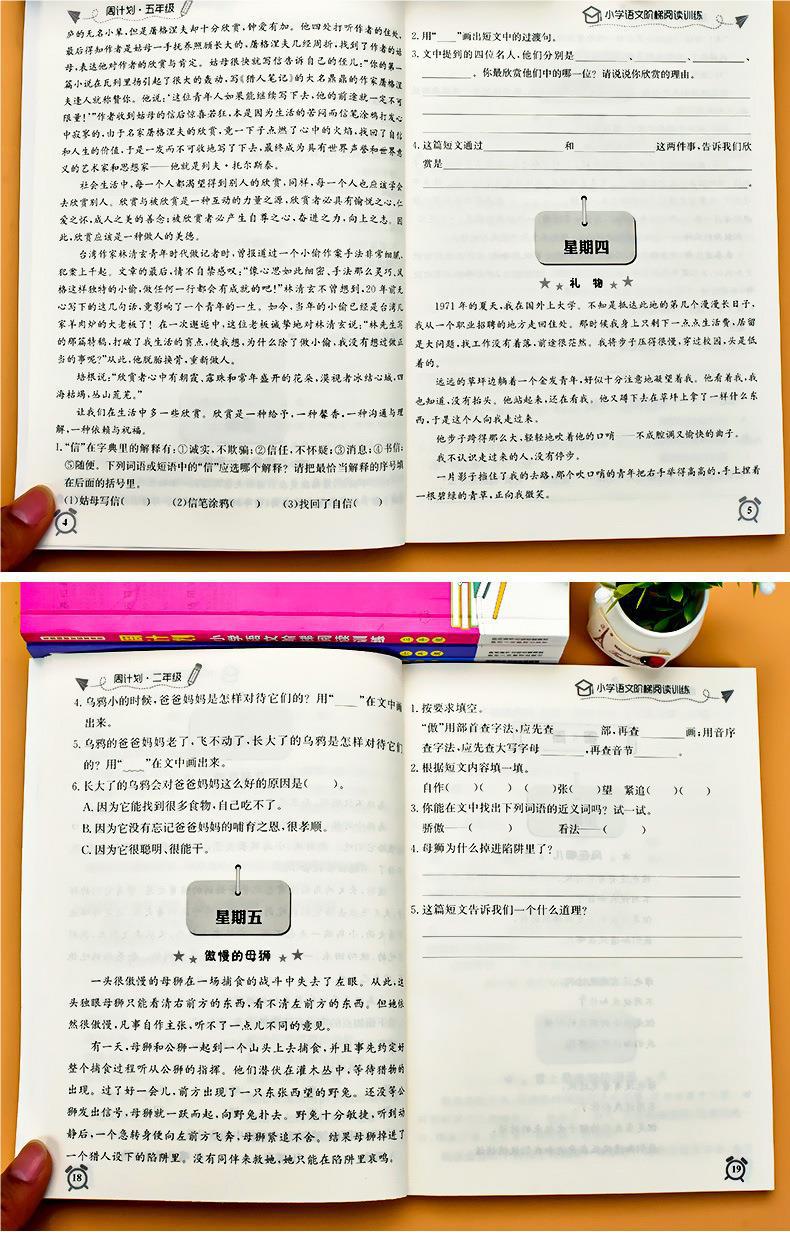 周计划·五年级
庐的无名小辈,但是屠格涅夫却十分欣赏,钟爱有加。他四处打听作者的住处,
最后得知作者是姑母一手抚养照顾长大的,屠格涅夫几经周折,找到了作者的姑
母,表达他对作者的欣赏与肯定。姑母很快就写信告诉自己的侄儿:“你的第一
篇小说在瓦列里扬引起了很大的轰动,写《猎人笔记》的大名鼎鼎的作家屠格涅
夫逢人就称赞你。他说:‘这位青年人如果能继续写下去,他的前途就一定不可
限量!’”作者收到姑母的信后惊喜若狂,本是因为生活的苦闷而信笔涂鸦打发心
中寂寥的,由于名家屠格涅夫的欣赏,竟一下子点燃了心中的火焰,找回了自信
和人生的价值,于是一发而不可收地写了下去,最终成为具有世界声誉和世界意
义的艺术家和思想家——他就是列夫·托尔斯泰。
社会生活中,每一个人都渴望得到别人的欣赏,同样,每一个人也应该学会
去欣赏别人。欣赏与被欣赏是一种互动的力量之源,欣赏者必具有愉悦之心,仁
爱之怀,成人之美的善念;被欣赏者必产生自尊之心,奋进之力,向上之志。因
此,欣赏应该是一种做人的美德。
台湾作家林清玄青年时代做记者时,曾报道过一个小偷作案手法非常细腻,
犯案上千起。文章的最后,情不自禁感叹:“像心思如此细密、手法那么灵巧、风
格这样独特的小偷,做任何一行都会有成就的吧!”林清玄不曾想到,20年前无
心写下的这几句话,竟影响了一个青年的一生。如今,当年的小偷已经是台湾几
家羊肉炉的大老板了!在一次邂逅中,这位老板诚挚地对林清玄说:“林先生写
的那篇特稿,打破了我生活的盲点,使我想,为什么除了做小偷,我没有想过做正
当的事呢?”从此,他脱胎换骨,重新做人。
培根说:“欣赏者心中有朝霞、露珠和常年盛开的花朵,漠视者冰结心城、四
海枯竭、丛山荒芜。”
让我们在生活中多一些欣赏。欣赏是一种给予,一种馨香,一种沟通与理
解,一种依赖与祝福。
1.“信”在字典里的解释有:①诚实,不欺骗;②信任,不怀疑;③消息;④书信;
⑤随便。下列词语或短语中的“信”应选哪个解释?请把最恰当解释的序号填
在后面的括号里。
(1)姑母写信( ) (2)信笔涂鸦( ) (3)找回了自信( )
4
小学语文阶梯阅读训练
2.用“____”画出短文中的过渡句。
3.文中提到的四位名人,他们分别是________、________、________、
________。你最欣赏他们中的哪一位?请说说你欣赏的理由。
4.这篇短文通过____________和____________这两件事,告诉我们欣
赏是____________。
星期四
礼 物
1971年的夏天,我在国外上大学。不知是抵达此地的第几个漫漫长日子,
我从一个职业招聘的地方走回住处。那时候我身上只剩下一点点生活费,居留
是大问题,找工作没有着落,前途很茫然。我将步子压得很慢,穿过校园,头是低
着的。
远远的草坪边躺着一个金发青年,好似十分注意地凝望着我。他看着我,我
也知道,没有抬头。他站起来,还在看我。他又蹲下去在草坪上拿了一样什么东
西,于是这个人向我走过来。
他步子跨得那么大,轻轻地吹着他的口哨——不成腔调又愉快的曲子。
我不认识走过来的人,没有停步。
一片影子挡住了我的去路,那个吹口哨的青年把右手举得高高的,手上捏着
一根碧绿的青草,正向我微笑。
5
小学语文阶梯阅读训练
周计划·二年级
4.乌鸦小的时候,爸爸妈妈是怎样对待它们的?用“____”在文中画
出来。
5.乌鸦的爸爸妈妈老了,飞不动了,长大了的乌鸦是怎样对待它们
的?用“﹏﹏”在文中画出来。
6.长大了的乌鸦会对爸爸妈妈这么好的原因是( )。
A.因为它能找到很多食物,自己吃不了。
B.因为它没有忘记爸爸妈妈的哺育之恩,很孝顺。
C.因为它很聪明、很能干。
星期五
傲慢的母狮
一头很傲慢的母狮在一场捕食的战斗中失去了左眼。从此,这
头独眼母狮只能看清右前方的东西,看不清左前方的东西。但她依
然很傲慢,凡事自作主张,听不了一点儿不同的意见。
有一天,母狮和公狮一起到一个山头上去捕食,并且事先约定好
整个捕食过程听从公狮的指挥。他们潜伏在灌木丛中,等待猎物的
出现。过了好一会儿,前方出现了一只东张西望的野兔。还没等公
狮发出信号,母狮就一跃而起,向野兔扑去。野兔十分敏捷,听到动
静后,一个急转身便向左前方飞奔,母狮紧追不舍。结果母狮掉进了
一个猎人设下的陷阱里。没有同伴来救她,她只能在陷阱里哀鸣。
18
小学语文阶梯阅读训练
1.按要求填空。
“傲”用部首查字法,应先查______部,再查______画;用音序
查字法,应先查大写字母______,再查音节______。
2.根据短文内容填一填。
自作( )( ) ( )张( )望 紧追( )( )
3.你能在文中找出下列词语的近义词吗?试一试。
骄傲——( ) 看法——( )
4.母狮为什么掉进陷阱里了?
5.这篇短文告诉我们一个什么道理?
19